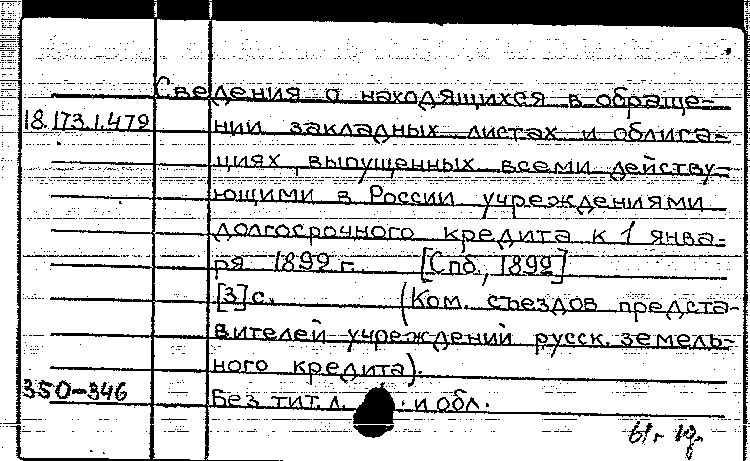 Сведения о находящихся в обраще-
18.173.1.479 нии закладных листах и облига-
циях, выпущенных всеми действу-
ющими в России учреждениями
долгосрочного кредита к 1 янва-
ря 1899 г. [Спб., 1899]
[3] с. (Ком. съездов предста-
вителей учреждений русск. земель-
ного кредита).
350-346 Без тит. л. и обл.
61г.